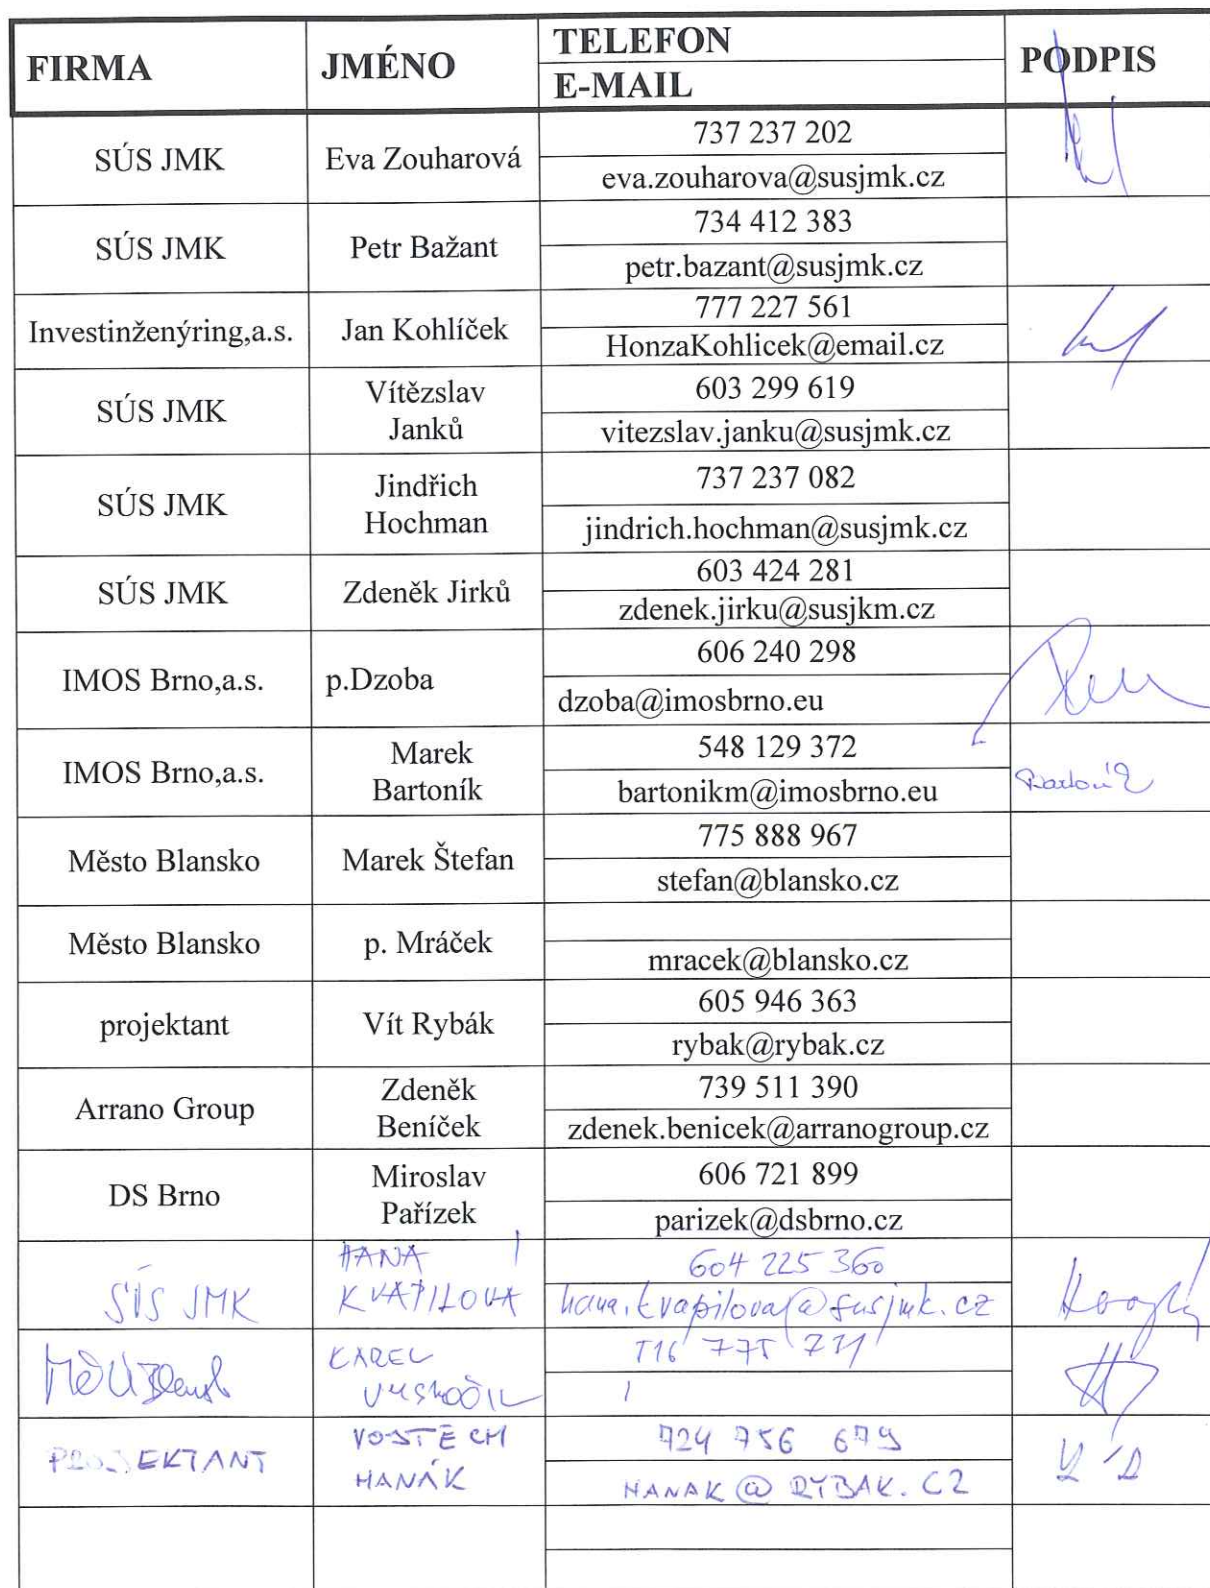 FIRMA JMÉNO TELEFON PODPIS
E-MAIL
SÚS JMK Eva Zouharová 737 237 202
eva.zouharova@susjmk.cz
SÚS JMK Petr Bažant 734 412 383
petr.bazant@susjmk.cz
Investinženýring,a.s. Jan Kohlíček 777 227 561
HonzaKohlicek@email.cz
SÚS JMK Vítězslav 603 299 619
Janků vitezslav.janku@susjmk.cz
SÚS JMK Jindřich 737 237 082
Hochman jindrich.hochman@susjmk.cz
SÚS JMK Zdeněk Jirků 603 424 281
zdenek.jirku@susjkm.cz
IMOS Brno,a.s. p.Dzoba 606 240 298
dzoba@imosbrno.eu
IMOS Brno,a.s. Marek 548 129 372
Bartoník bartonikm@imosbrno.eu
Město Blansko Marek Štefan 775 888 967
stefan@blansko.cz
Město Blansko p. Mráček
mracek@blansko.cz
projektant Vít Rybák 605 946 363
rybak@rybak.cz
Arrano Group Zdeněk 739 511 390
Beníček zdenek.benicek@arranogroup.cz
DS Brno Miroslav 606 721 899
Pařízek parizek@dsbrno.cz
SÚS JMK HANA 604 225 360
KVAPILOVÁ hana.kvapilova@susjmk.cz
KAREL 775
PROJEKTANT VOJTĚCH 724 756 679
HANÁK HANAK@RYBAK.CZ